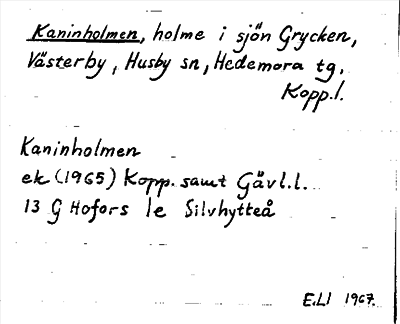 Kaninholmen, holme i sjön Grycken,
Västerby, Husby sn, Hedemora tg,
Kopp.l.
Kaninholmen
ek (1965) Kopp. samt Gävl.l.
13 G Hofors 1e Silvhytteå
E.Ll 1967.